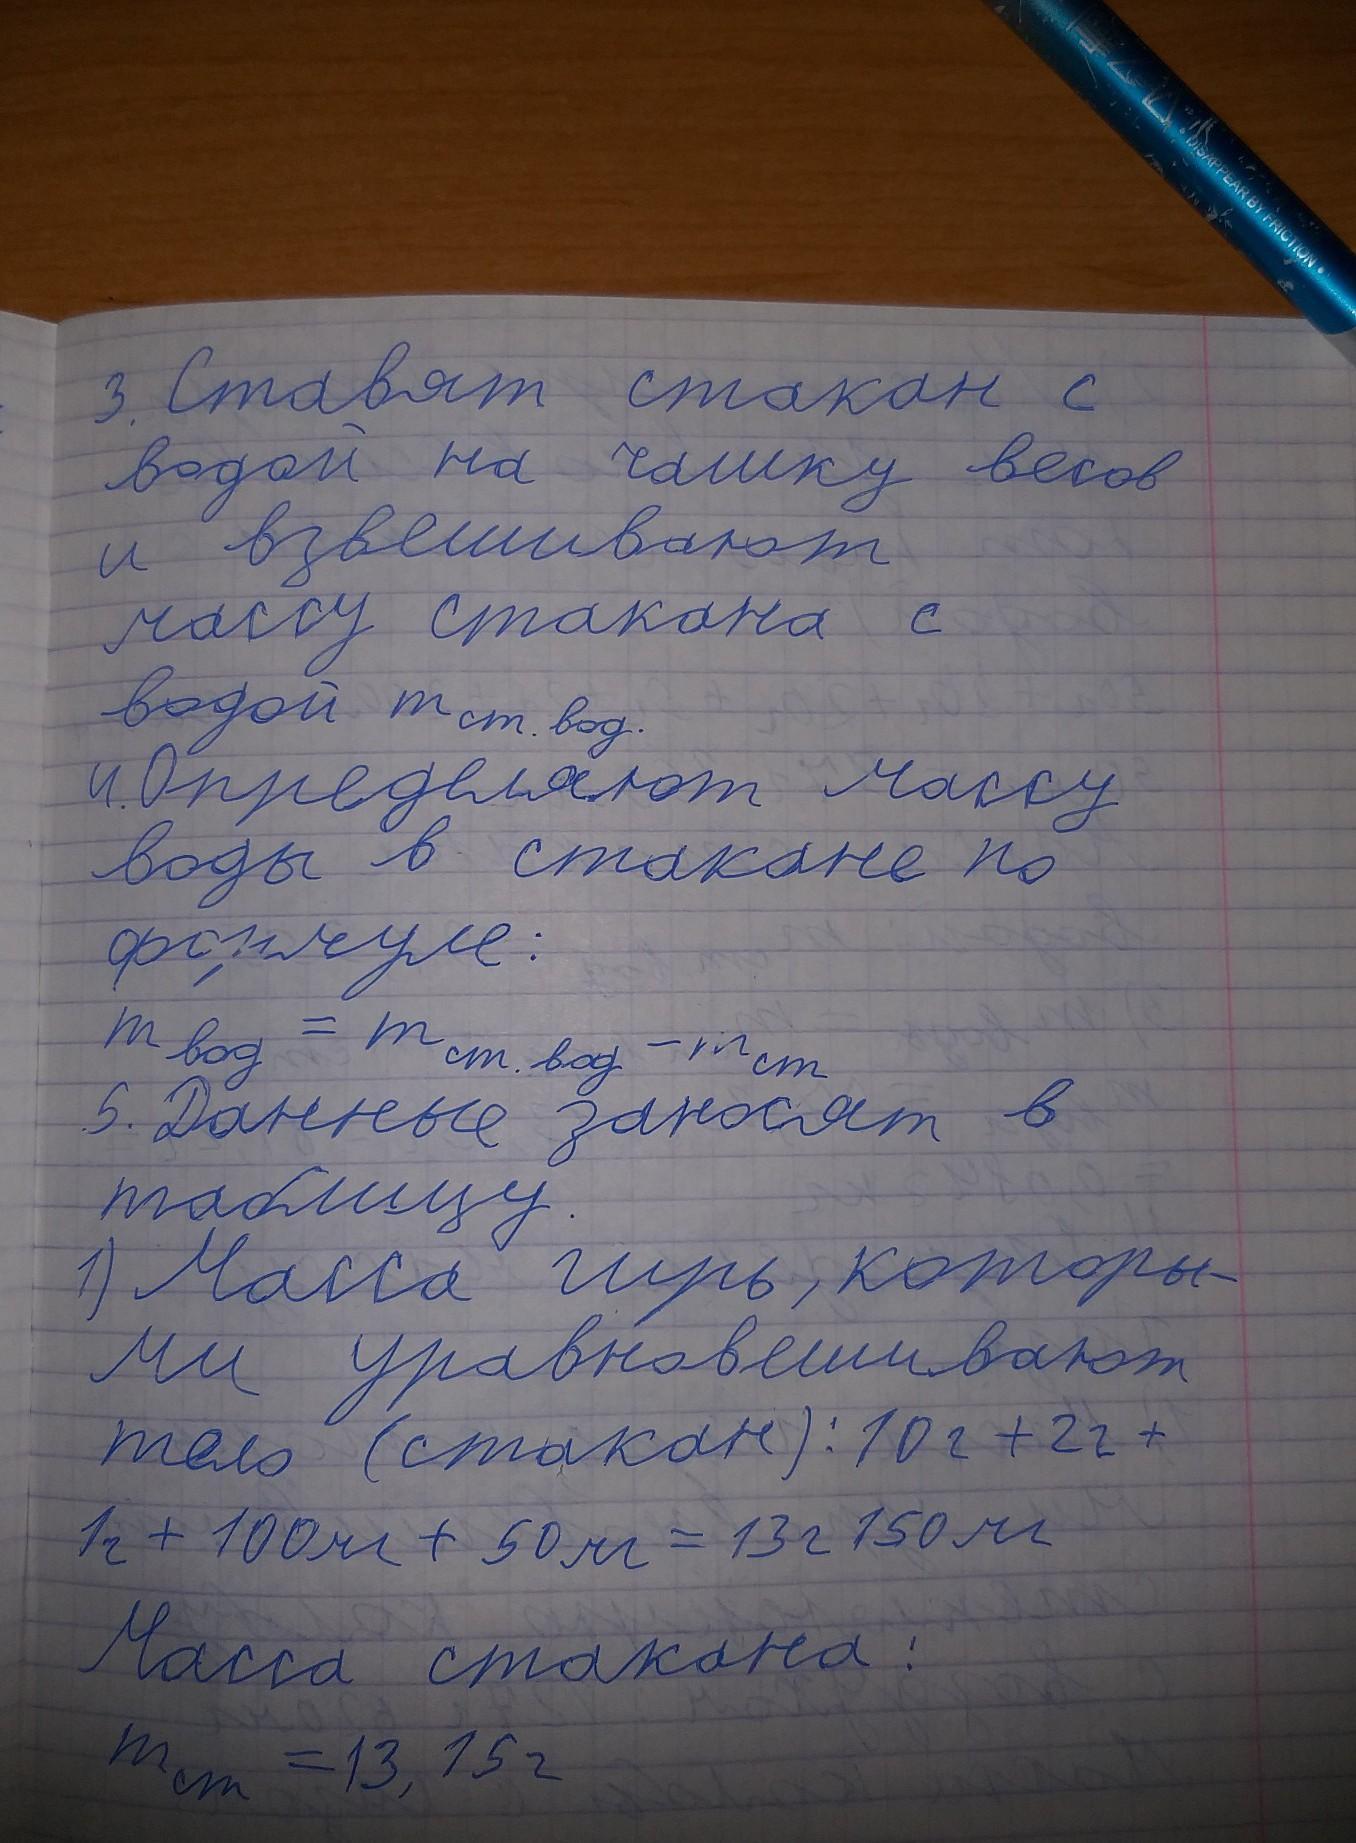 DISAPPEAR BY FRICTION
3. Ставят стакан с
водой на чашку весов
и взвешивают
массу стакана с
водой m ст. вод.
4. Определяют массу
воды в стакане по
формуле:
m вод = m ст. вод - m ст
5. Данные заносят в
таблицу.
1) Масса гирь, которы-
ми уравновешивают
тело (стакан): 10г + 2г +
1г + 100мг + 50мг = 13г 150мг
Масса стакана:
m ст = 13,15г